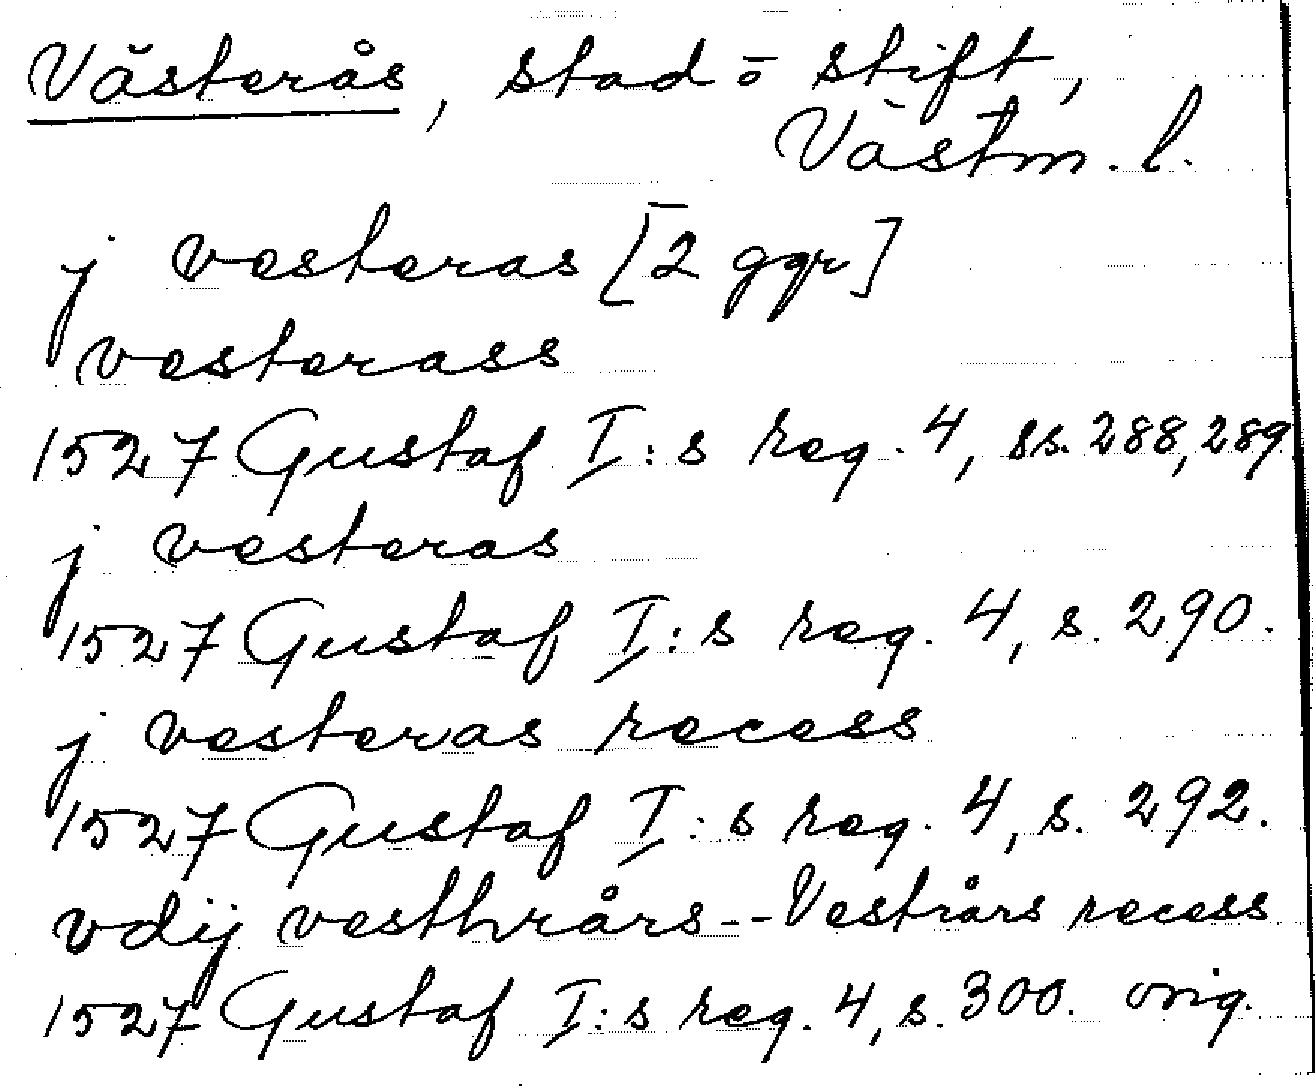 Västerås, stad o stift,
Västm. l.
j vesteras [2 ggr]
vesterass
1527 Gustaf I:s reg. 4, ss. 288, 289.
j vesteras
1527 Gustaf I:s reg. 4, s. 290.
j vesteras recess
1527 Gustaf I:s reg. 4, s. 292.
vdij vesthrårs -- Vestrårs recess
1527 Gustaf I:s reg. 4, s. 300. orig.